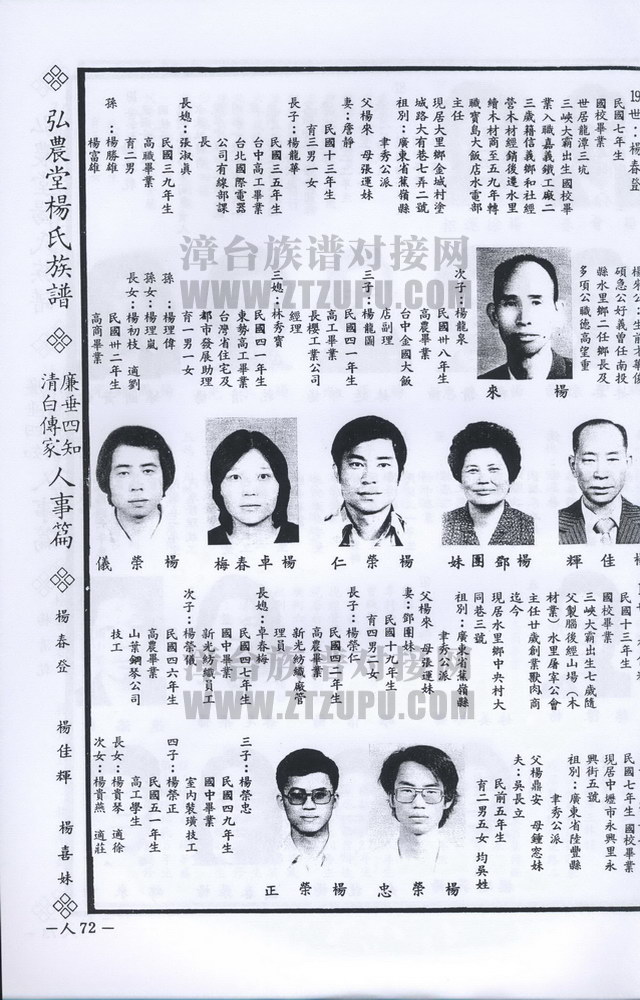 19世：楊春登
民國七年生
國校畢業
世居龍潭三坑
三峽大霸出生國校畢
業入職嘉義鐵工廠二
三歲籍信義鄉和社經
營木材經銷後遷水里
續木材商至五九年轉
職寶島大飯店水電部
主任
現居大里鄉金城村塗
城路大有巷七弄二號
祖別：廣東省蕉嶺縣
聿秀公派
父楊來　母張運妹
妻：詹靜
民國十三年生
育三男一女
長子：楊龍華
民國三五年生
台中高工畢業
台北國際電器
公司有線部課
長
長媳：張淑真
民國三九年生
高職畢業
育二男
孫：楊勝雄
楊富雄
碩急公好義曾任南投
縣水里鄉二任鄉長及
多項公職德高望重
楊來
次子：楊龍泉
民國卅八年生
高農畢業
台中金國大飯
店副理
三子：楊龍圖
民國四一年生
高工畢業
長櫻工業公司
經理
三媳：林秀寶
民國四一年生
東勢高工畢業
台灣省住宅及
都市發展助理
育一男一女
孫：楊理偉
孫女：楊理嵐
長女：楊初枝　適劉
民國卅二年生
高商畢業
楊佳輝
楊鄧團妹
楊榮仁
楊卓春梅
楊榮儀
民國十三年生
國校畢業
三峽大霸出生七歲隨
父製腦後經山場（木
材業）水里屠宰公會
主任廿歲創業獸肉商
迄今
現居水里鄉中央村大
同巷三號
祖別：廣東省蕉嶺縣
聿秀公派
父楊來　母張運妹
妻：鄧團妹
民國十九年生
育四男二女
長子：楊榮仁
民國四一年生
高農畢業
新光紡織廠管
理員
長媳：卓春梅
民國四七年生
國中畢業
新光紡織員工
次子：楊榮儀
民國四六年生
高農畢業
山葉鋼琴公司
技工
民國七年生　國校畢業
現居中壢市永興里永
興街五號
祖別：廣東省陸豐縣
聿秀公派
父楊鼎安　母鍾窓妹
夫：吳長立
民前五年生
育二男五女　均吳姓
楊榮忠
楊榮正
三子：楊榮忠
民國四九年生
國中畢業
室內裝璜技工
四子：楊榮正
民國五一年生
高工學生
長女：楊貴琴　適徐
次女：楊貴燕　適莊
弘農堂楊氏族譜
廉垂四知
清白傳家
人事篇
楊春登
楊佳輝
楊喜妹
—人72—
漳台族谱对接网
WWW.ZTZUPU.COM
漳台族谱对接网
WWW.ZTZUPU.COM